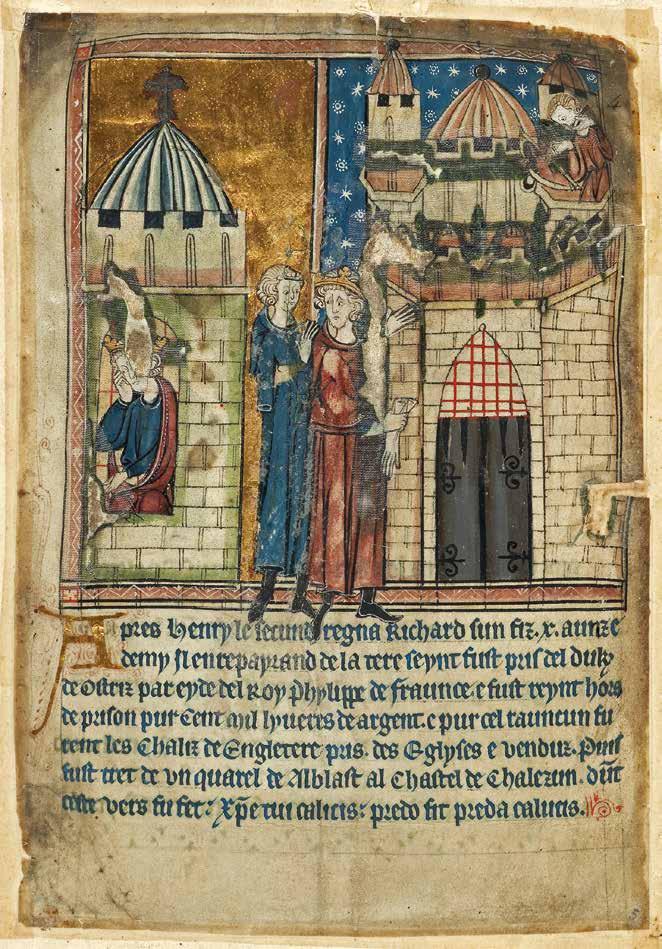 Apres Henry le secund regna Richard sun fiz .x. aunz e
demy Il en repayrand de la tere seynt fust pris del duk
de Ostriz par eyde del Roy Phylippe de fraunce. e fust reynt hors
de prison pur Cent mil lyueres de argent. e pur cel rauncun fu
rent les Chaliz de Engletere pris. des Eglyses e venduz. Puis
fust tret de vn quarel de Alblast al Chastel de Chalezun. dunt
ceste vers fu fet: Xp̄e tui calicis: predo fit preda calucis.